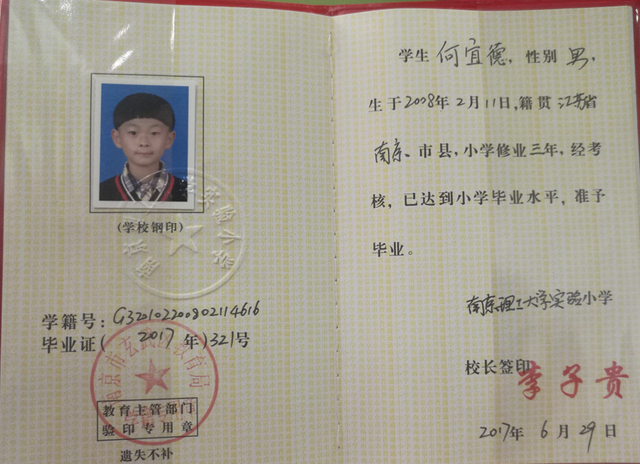 (学校钢印)
学籍号:G320102200802114616
毕业证(2017年)321号
南京市玄武区教育局
教育主管部门
验印专用章
遗失不补
学生 何宜德,性别 男,
生于2008年2月11日,籍贯 江苏省
南京、市县,小学修业三年,经考
核,已达到小学毕业水平,准予
毕业。
南京理工大学实验小学
校长签印
李子贵
2017年 6月29日